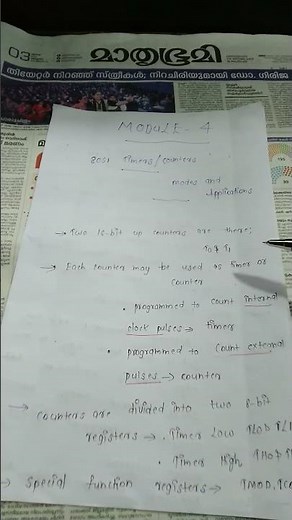 03
മാതൃഭൂമി
തിയേറ്റർ നിറഞ്ഞ് സ്ത്രീകൾ; നിറചിരിയുമായി ഡോ. ഗിരിജ
MODULE - 4
8051 Timers/counters
modes and
Applications
→ Two 16-bit up counters are there;
T0 & T1
→ Each counter may be used as timer or
counter
• programmed to count internal
clock pulses → timers
• programmed to count external
pulses → counter
→ counters are divided into two 8-bit
registers → • Timer Low TL0 &
• Timer High TH0 &
→ Special function registers → TMOD,